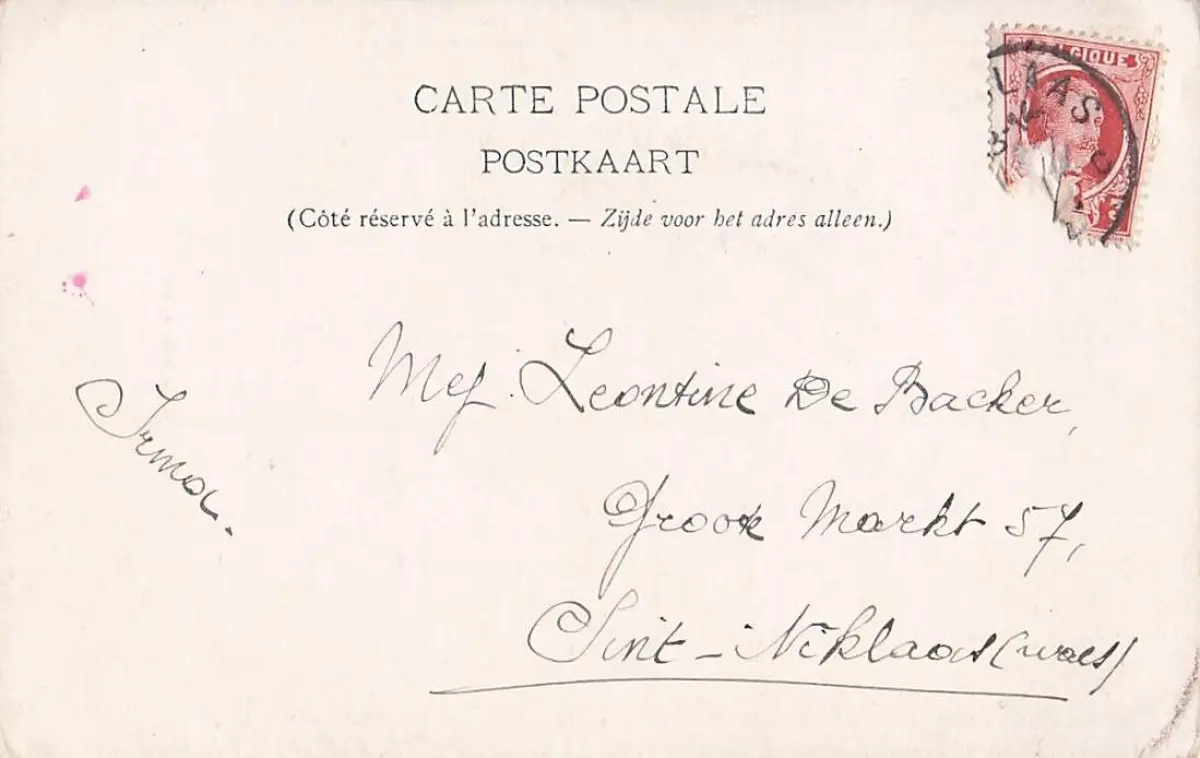 CARTE POSTALE
POSTKAART
(Côté réservé à l'adresse. — Zijde voor het adres alleen.)
LGIQUE
LAAS
Mej. Leontine De Backer,
Groote Markt 57,
Sint-Niklaas (waes)
Irma.